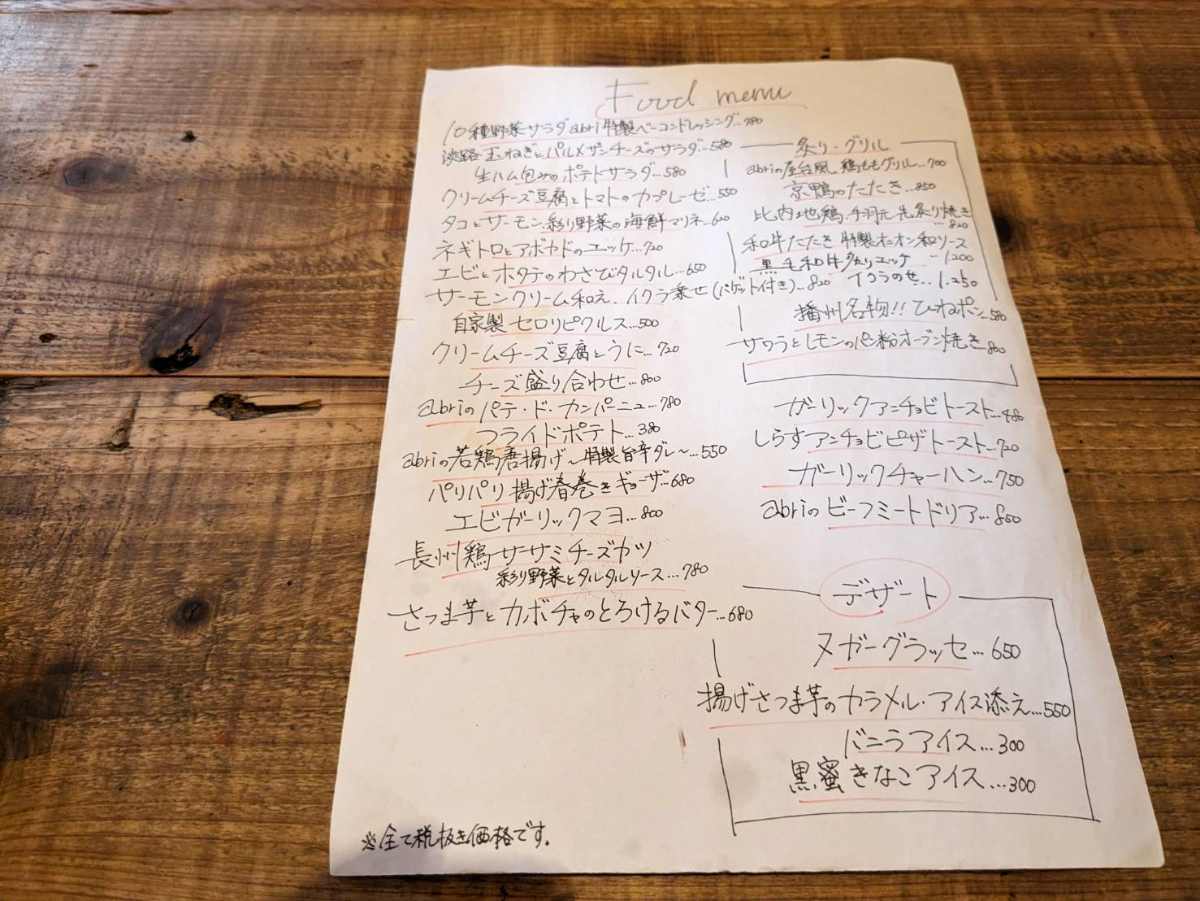 Food menu
10種野菜サラダabri特製ベーコンドレッシング…780
淡路玉ねぎとパルメザンチーズのサラダ…580
生ハム包みのポテトサラダ…580
クリームチーズ豆腐とトマトのカプレーゼ…550
タコとサーモン、彩り野菜の海鮮マリネ…600
ネギトロとアボカドのユッケ…720
エビとホタテのわさびタルタル…650
サーモンクリーム和え、イクラ乗せ(バゲット付き)…820
自家製セロリピクルス…500
クリームチーズ豆腐とうに…720
チーズ盛り合わせ…800
abriのパテ・ド・カンパーニュ…780
フライドポテト…380
abriの若鶏唐揚げ～特製旨辛ダレ～…550
パリパリ揚げ春巻きギョーザ…680
エビガーリックマヨ…800
長州鶏サーサミチーズカツ
彩り野菜とタルタルソース…780
さつま芋とカボチャのとろけるバター…680
炙り・グリル
abriの屋台風、鶏ももグリル…700
京鴨のたたき…850
比内地鶏、手羽元先炙り焼き
…820
和牛たたき特製オニオン和ソース
…1,200
黒毛和牛炙りユッケ
イクラのせ…1,250
播州名物!!ひねポン…580
サワラとレモンのパン粉オーブン焼き…800
ガーリックアンチョビトースト…480
しらすアンチョビピザトースト…720
ガーリックチャーハン…750
abriのビーフミートドリア…850
デザート
ヌガーグラッセ…650
揚げさつま芋のカラメル・アイス添え…550
バニラアイス…300
黒蜜きなこアイス…300
※全て税抜き価格です。